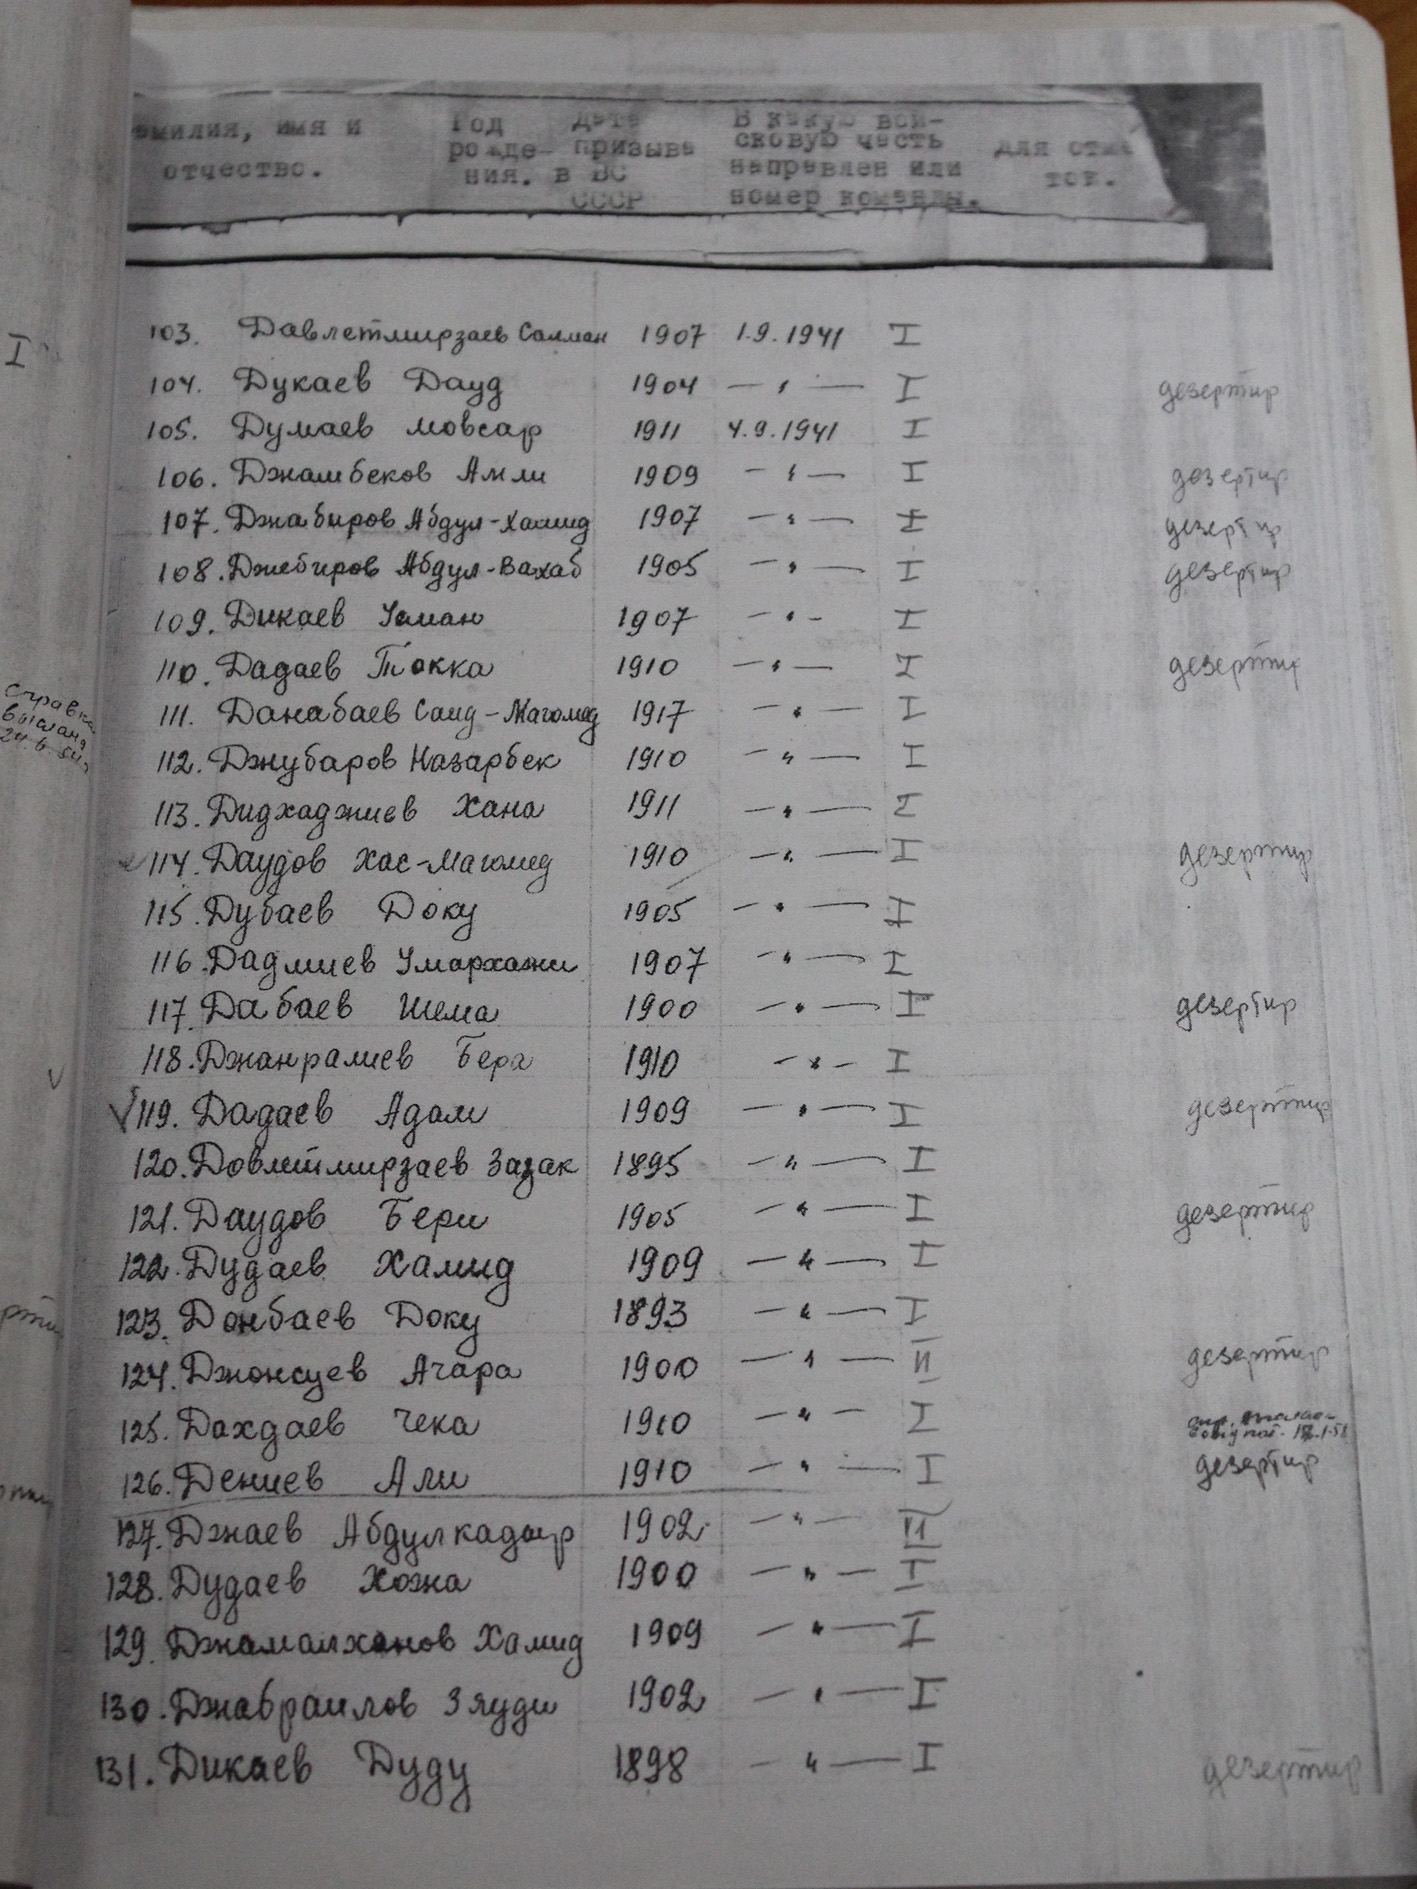 амилия, имя и отчество.
Год рожде- ния.
Дата призыва в ВС СССР
В какую вой- сковую часть направлен или номер команды.
Для отме ток.
I
103. Давлетмирзаев Салман 1907 1.9.1941 I
104. Дукаев Дауд 1904 —〃— I дезертир
105. Думаев Мовсар 1911 4.9.1941 I
106. Джамбеков Амли 1909 —〃— I дезертир
107. Джабиров Абдул-Хамид 1907 —〃— I дезертир
108. Джебиров Абдул-Вахаб 1905 —〃— I дезертир
109. Дикаев Усман 1907 —〃— I
110. Дадаев Токка 1910 —〃— I дезертир
Справка
выслана
111. Данабаев Саид-Магомед 1917 —〃— I
112. Джубаров Назарбек 1910 —〃— I
113. Дидхаджиев Хана 1911 —〃— I
114. Даудов Хас-Магомед 1910 —〃— I дезертир
115. Дубаев Доку 1905 —〃— I
116. Дадмиев Умархажи 1907 —〃— I
117. Дабаев Шема 1900 —〃— I дезертир
118. Джанралиев Бера 1910 —〃— I
√ 119. Дадаев Адам 1909 —〃— I дезертир
120. Довлетмирзаев Зазак 1895 —〃— I
121. Даудов Бери 1905 —〃— I дезертир
122. Дудаев Хамид 1909 —〃— I
123. Донбаев Доку 1893 —〃— I
124. Ачара 1900 —〃— II дезертир
125. Дахдаев Чека 1910 —〃— I
126. Дениев Али 1910 —〃— I дезертир
127. Джаев Абдулкадыр 1902 —〃— II
128. Дудаев Хожа 1900 —〃— I
129. Джамалханов Хамид 1909 —〃— I
130. Джабраилов Зяуди 1902 —〃— I
131. Дикаев Дуду 1898 —〃— I дезертир